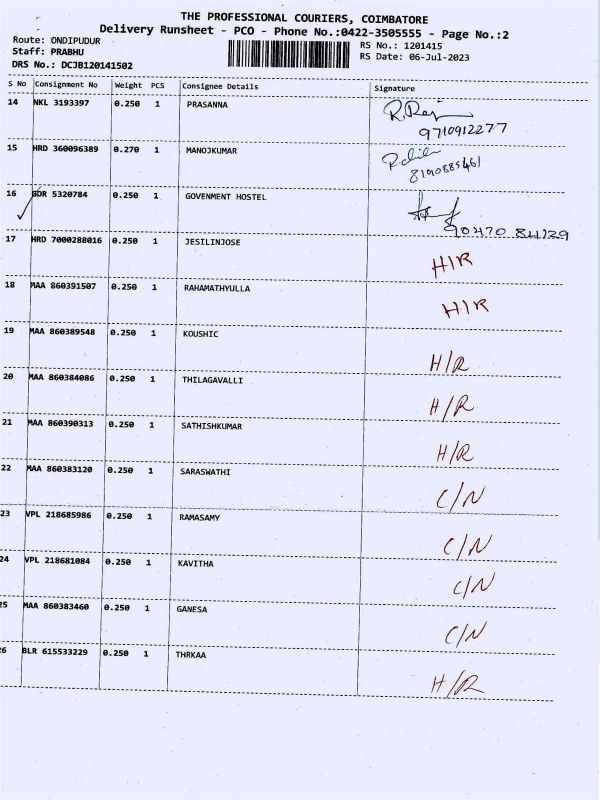 THE PROFESSIONAL COURIERS, COIMBATORE
Delivery Runsheet - PCO - Phone No.:0422-3505555 - Page No.:2
Route: ONDIPUDUR
RS No.: 1201415
Staff: PRABHU
RS Date: 06-Jul-2023
DRS No.: DCJB120141502
S No Consignment No Weight PCS Consignee Details Signature
14 NKL 3193397 0.250 1 PRASANNA
9710912277
15 HRD 360096389 0.270 1 MANOJKUMAR
8190885461
16 SDR 5320784 0.250 1 GOVENMENT HOSTEL
90470 84129
17 HRD 7000288016 0.250 1 JESILINJOSE H/R
18 MAA 860391507 0.250 1 RAHAMATHYULLA H/R
19 MAA 860389548 0.250 1 KOUSHIC H/R
20 MAA 860384086 0.250 1 THILAGAVALLI H/R
21 MAA 860390313 0.250 1 SATHISHKUMAR H/R
22 MAA 860383120 0.250 1 SARASWATHI C/N
23 VPL 218685986 0.250 1 RAMASAMY C/N
24 VPL 218681084 0.250 1 KAVITHA C/N
25 MAA 860383460 0.250 1 GANESA C/N
26 BLR 615533229 0.250 1 THRKAA H/R